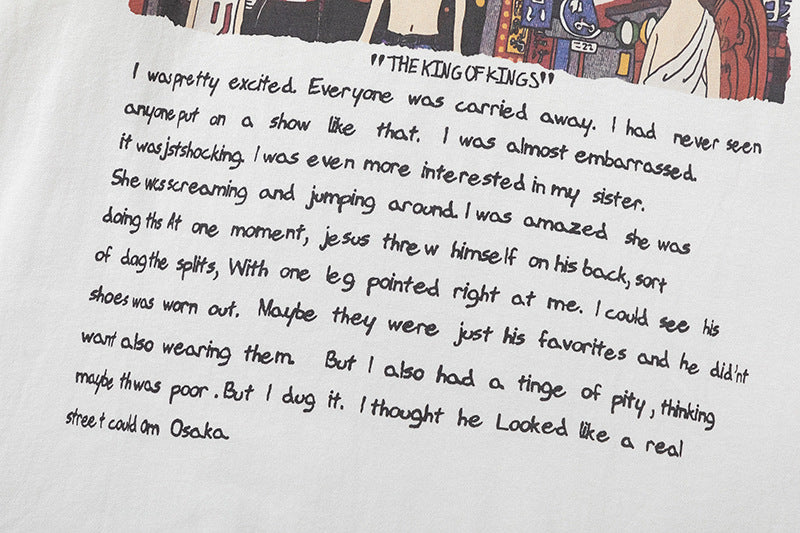 "THE KING OF KINGS"
I was pretty excited. Everyone was carried away. I had never seen
anyone put on a show like that. I was almost embarrassed.
it was jstshocking. I was even more interested in my sister.
She was screaming and jumping around. I was amazed she was
doing ths At one moment, jesus threw himself on his back, sort
of dagthe splits, With one leg pointed right at me. I could see his
shoes was worn out. Maybe they were just his favorites and he did'nt
want also wearing them. But I also had a tinge of pity, thinking
maybe thwas poor. But I dug it. I thought he Looked like a real
street could am Osaka.